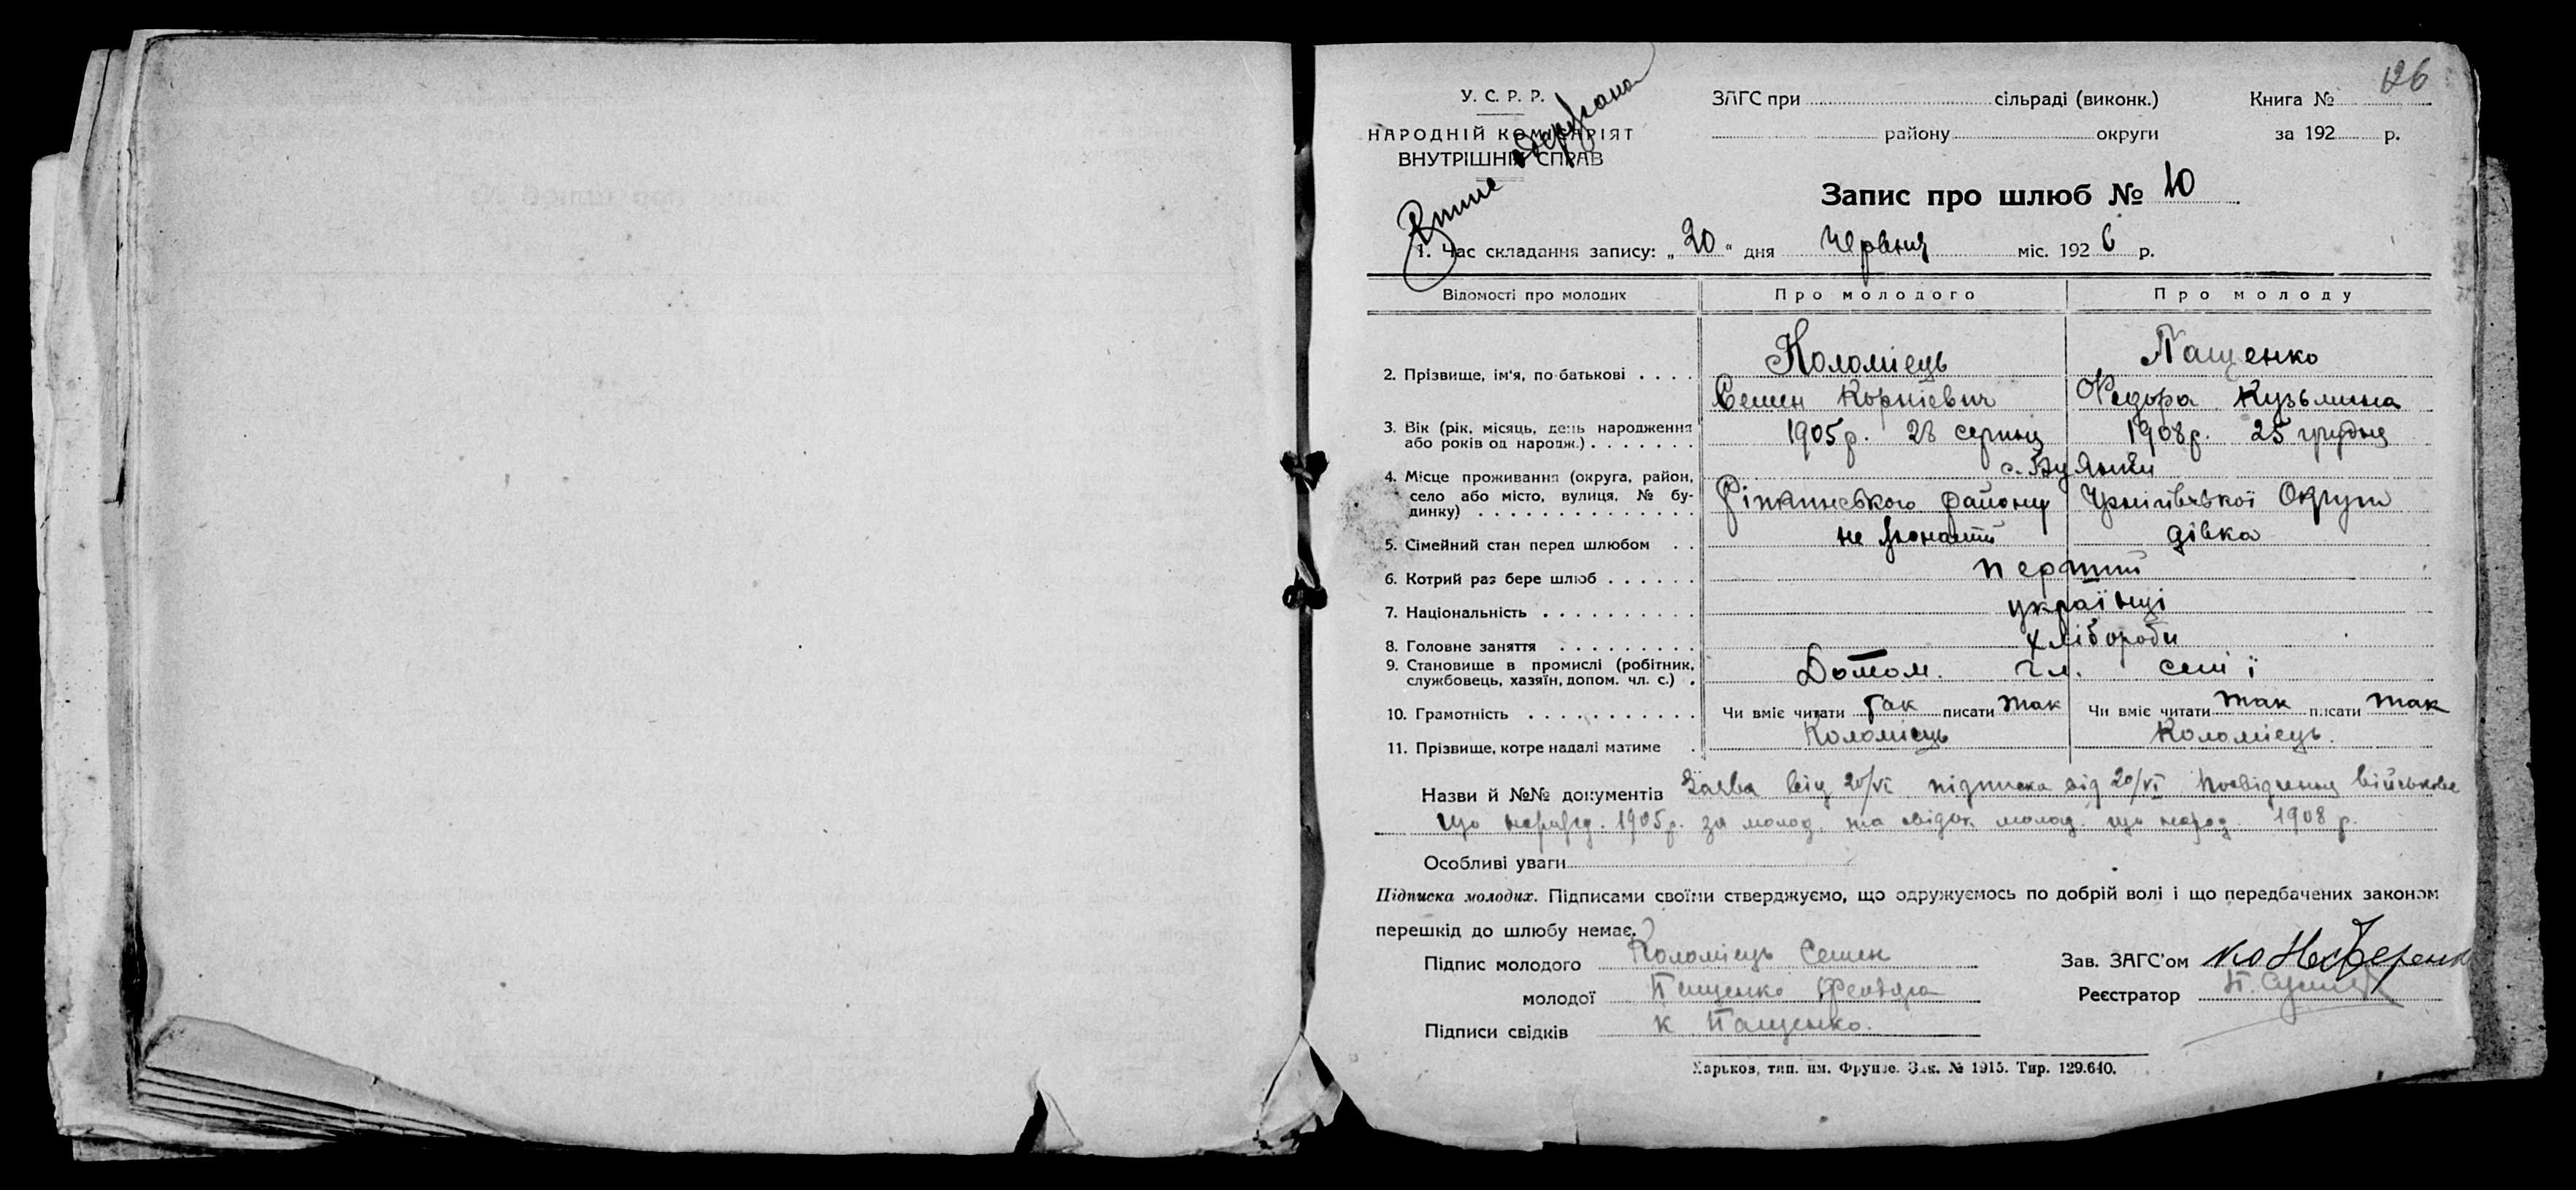 126
У. С. Р. Р.
НАРОДНІЙ КОМІСАРІЯТ
ВНУТРІШНІХ СПРАВ
ЗАГС при сільраді (виконк.) Книга №
району округи за 192 р.
Запис про шлюб № 10
1. Час складання запису: „20“ дня Червня міс. 1926 р.
Відомості про молодих Про молодого Про молоду
Коломієць Пащенко
2. Прізвище, ім'я, по батькові
Семен Корнієвич Федора Кузьмина
3. Вік (рік, місяць, день народження
або років од народж.)
1905р. 28 серпня 1908р. 25 грудня
4. Місце проживання (округа, район,
село або місто, вулиця, № бу-
динку)
Ріпкинського району Чернігівської Округи
5. Сімейний стан перед шлюбом не жонатий дівка
6. Котрий раз бере шлюб перший
7. Національність українці
8. Головне заняття хлібороби
9. Становище в промислі (робітник,
службовець, хазяїн, допом. чл. с.)
Допом. чл. семії
10. Грамотність Чи вміє читати так писати так Чи вміє читати так писати так
11. Прізвище, котре надалі матиме Коломієць Коломієць.
Назви й №№ документів Заява від 20/VI підписка від 20/VI посвідчення військове
що 1905р. за молод. та свідок молод. що народ. 1908 р.
Особливі уваги
Підписка молодих. Підписами своїми стверджуємо, що одружуємось по добрій волі і що передбачених законом
перешкід до шлюбу немає.
Підпис молодого Коломієць Семен Зав. ЗАГС'ом
молодої Пащенко Реєстратор
Підписи свідків К Пащенко.
Харьков, тип. им. Фрунзе. Зак. № 1915. Тир. 129.640.